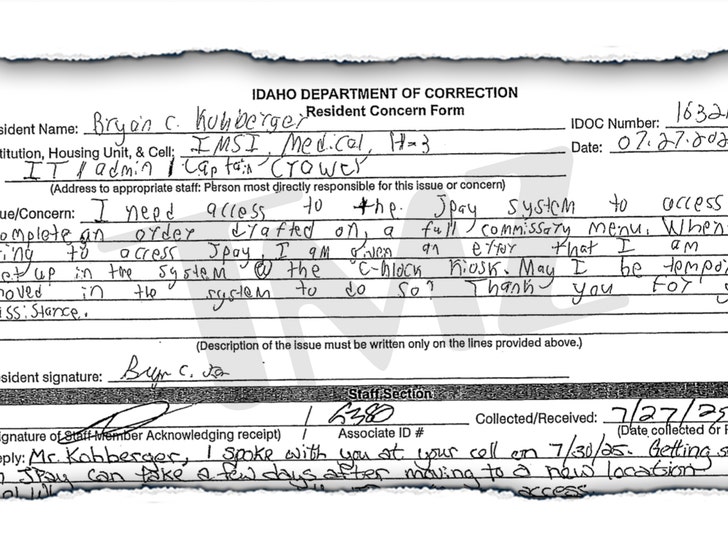 IDAHO DEPARTMENT OF CORRECTION
Resident Concern Form
sident Name: Bryan C. Kohberger
IDOC Number: 1632
titution, Housing Unit, & Cell: IMSI, Medical, H-3
Date: 07.27.202
IT / admin / Captain Crower
(Address to appropriate staff: Person most directly responsible for this issue or concern)
ue/Concern: I need access to the Jpay system to access
omplete an order drafted on, a full commissary menu. When
ing to access Jpay, I am given an error that I am
et up in the system @ the C-block Kiosk. May I be tempo
moved in the system to do so? Thank you for y
ssistance.
(Description of the issue must be written only on the lines provided above.)
sident signature:
Staff Section
/ 6380
Collected/Received: 7/27/25
ignature of Staff Member Acknowledging receipt) / Associate ID # (Date collected or r
eply: Mr. Kohberger, I spoke with you at your cell on 7/30/25. Getting s
n JPay can take a few days after moving to a new location
access
TMZ